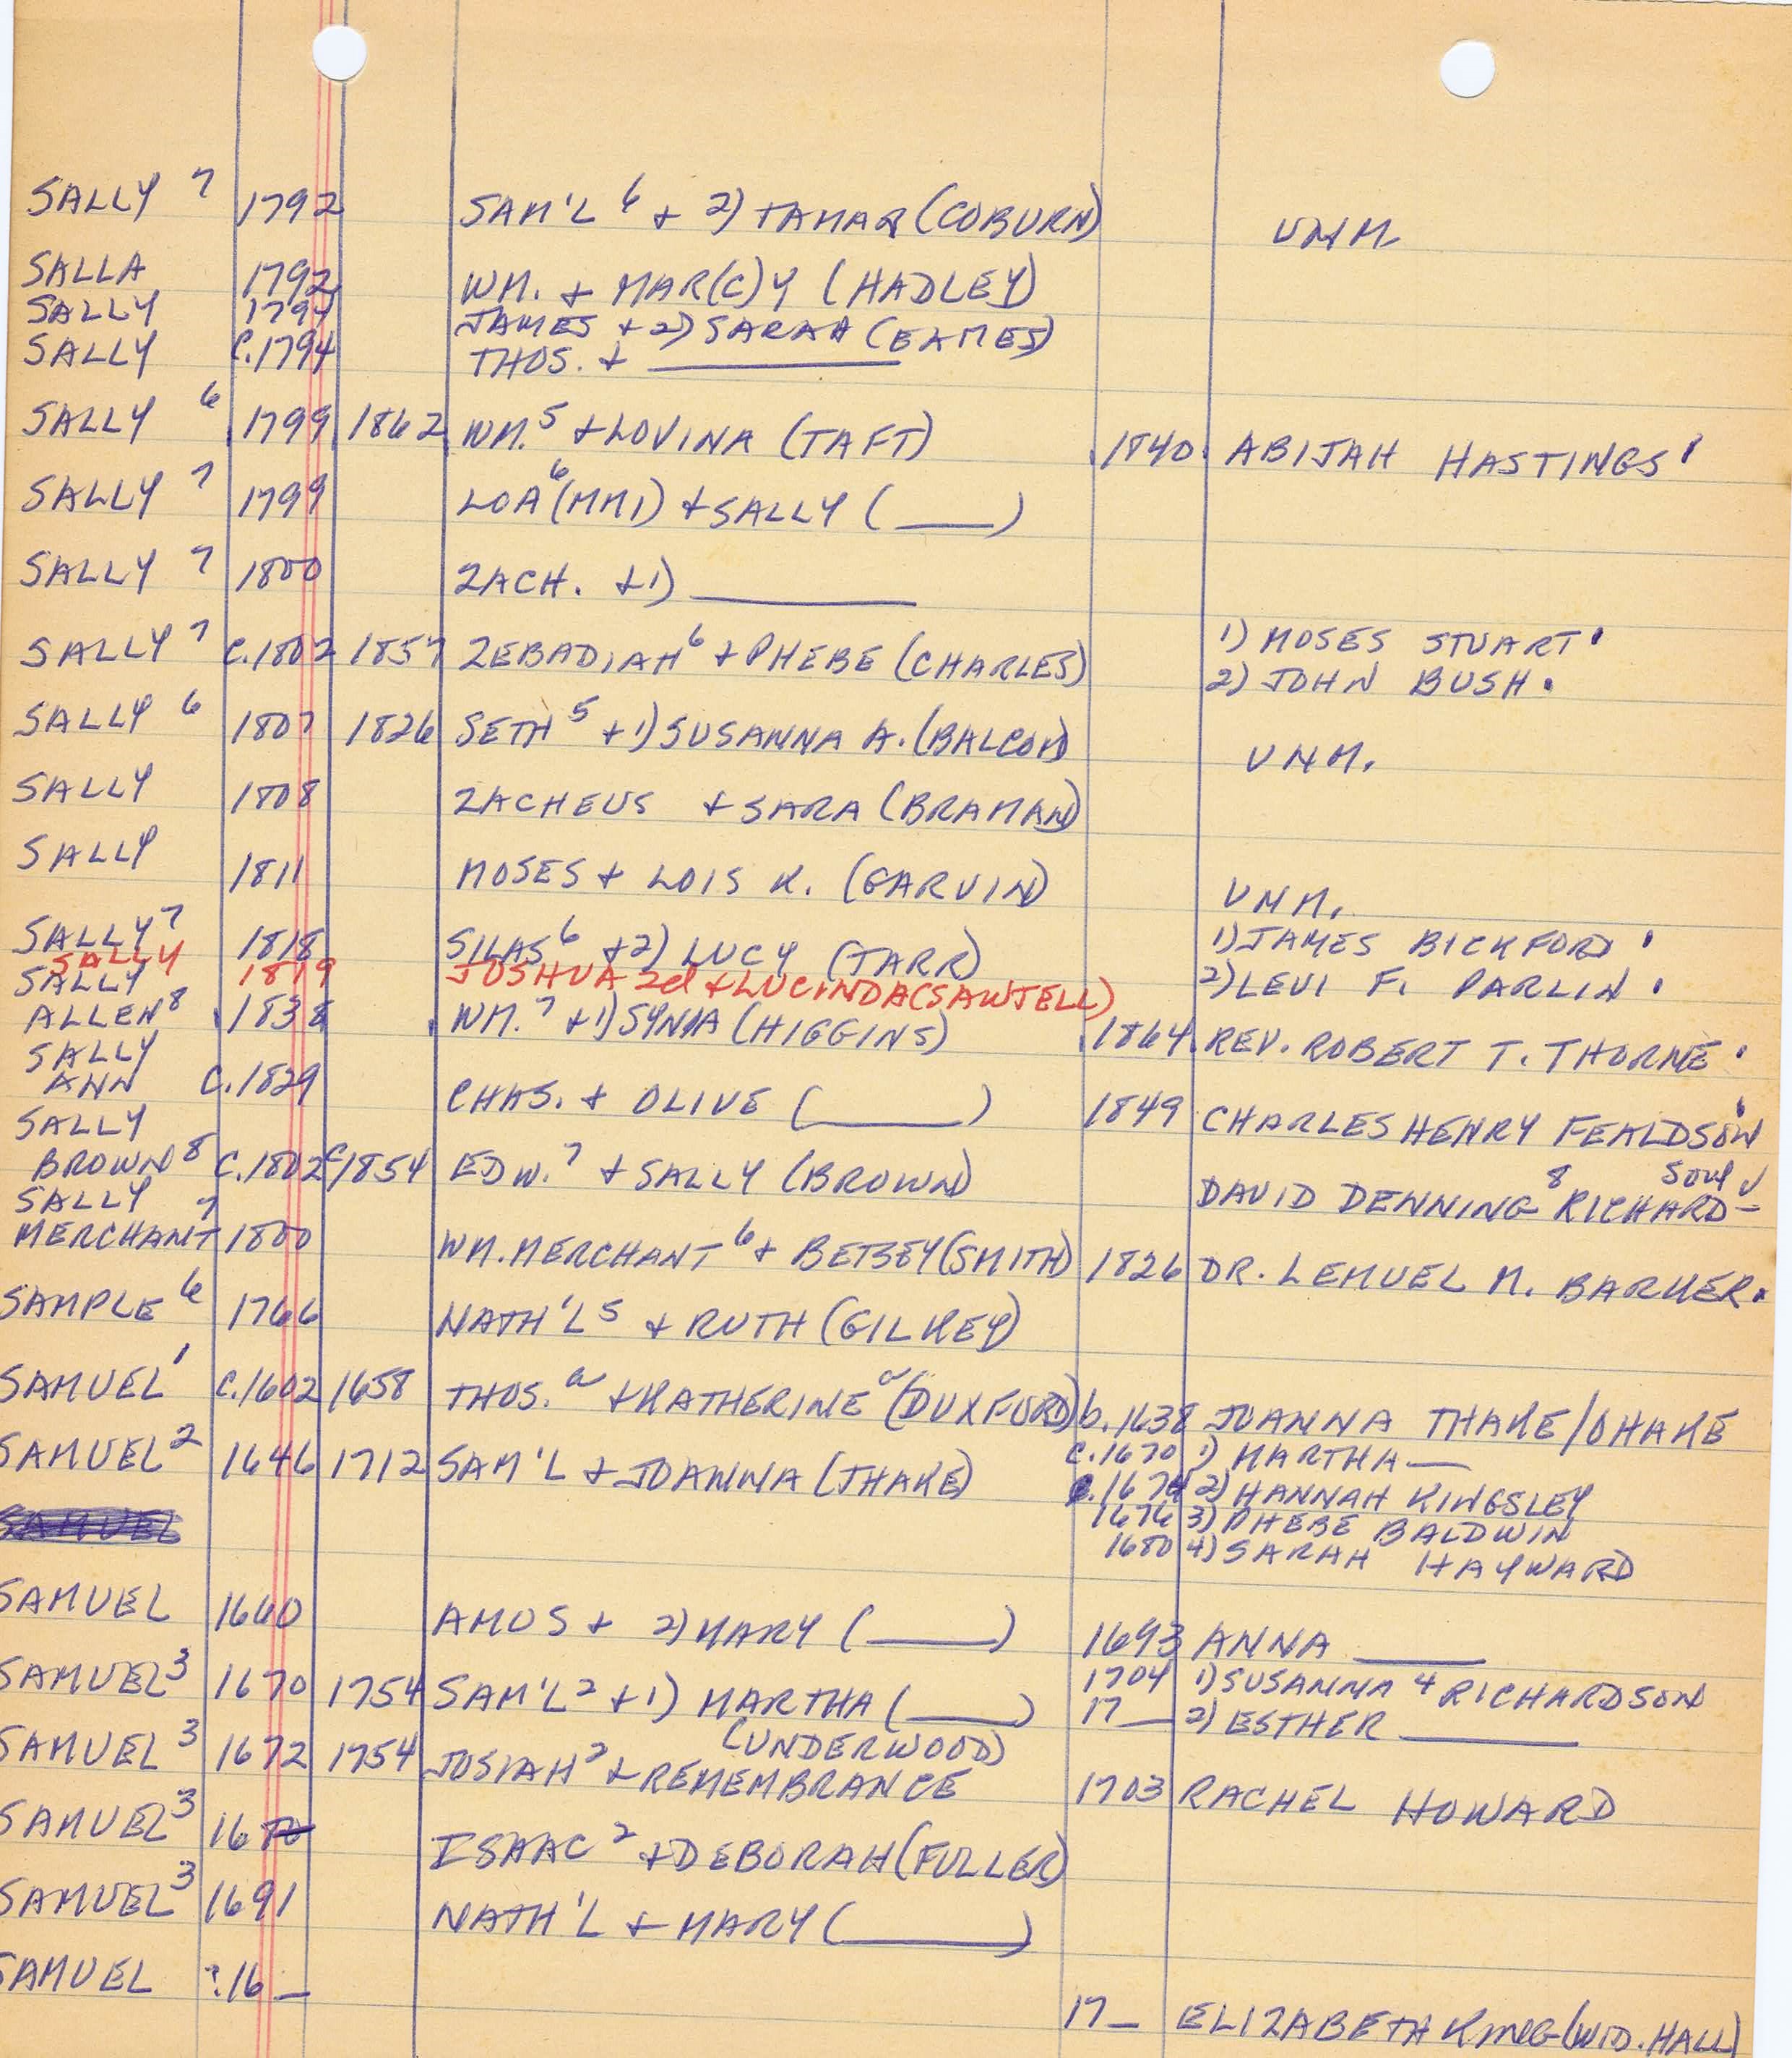 SALLY 7 1792 SAM'L 6 + 2) TAMAR (COBURN) UNM.
SALLA 1792 WM. + MAR(C)Y (HADLEY)
SALLY 1794 JAMES + 2) SARAH (EAMES)
SALLY C.1794 THOS. + ____
SALLY 6 1799 1862 WM. 5 + LOVINA (TAFT) 1840 ABIJAH HASTINGS.
SALLY 7 1799 LOA 6 (MMI) + SALLY (____)
SALLY 7 1800 ZACH. + 1) ____
SALLY 7 C.1802 1857 ZEBADIAH 6 + PHEBE (CHARLES) 1) MOSES STUART.
2) JOHN BUSH.
SALLY 6 1807 1826 SETH 5 + 1) SUSANNA A. (BALCOM) UNM.
SALLY 1808 ZACHEUS + SARA (BRAMAN)
SALLY 1811 MOSES + LOIS K. (GARVIN) UNM.
SALLY 7 1818 SILAS 6 + 2) LUCY (TARR) 1) JAMES BICKFORD.
SALLY 1819 JOSHUA 2d + LUCINDA (SAWTELL) 2) LEVI F. PARLIN.
SALLY
ALLEN 8 1838 WM. 7 + 1) SYNIA (HIGGINS) 1864 REV. ROBERT T. THORNE.
SALLY
ANN C.1829 CHAS. + OLIVE (____) 1849 CHARLES HENRY FEALDSON
SALLY
BROWN 8 C.1802 C1854 EDW. 7 + SALLY (BROWN) DAVID DENNING 8 RICHARD-
SON
SALLY
MERCHANT 7 1800 WM. MERCHANT 6 + BETSEY (SMITH) 1826 DR. LEMUEL M. BARKER.
SAMPLE 6 1766 NATH'L 5 + RUTH (GILKEY)
SAMUEL 1 C.1602 1658 THOS. a + KATHERINE a (DUXFORD) b. 1638 JOANNA THAKE/DHAKE
SAMUEL 2 1646 1712 SAM'L + JOANNA (THAKE) C.1670 1) MARTHA __
C.1674 2) HANNAH KINGSLEY
SAMUEL 1676 3) PHEBE BALDWIN
1680 4) SARAH HAYWARD
SAMUEL 1660 AMOS + 2) MARY (____) 1693 ANNA ____
SAMUEL 3 1670 1754 SAM'L 2 + 1) MARTHA (____) 1704 1) SUSANNA 4 RICHARDSON
17__ 2) ESTHER ____
SAMUEL 3 1672 1754 JOSIAH 2 + REMEMBRANCE (UNDERWOOD) 1703 RACHEL HOWARD
SAMUEL 3 16 ISAAC 2 + DEBORAH (FULLER)
SAMUEL 3 1691 NATH'L + MARY (____)
SAMUEL ?16__ 17__ ELIZABETH (WID. HALL)